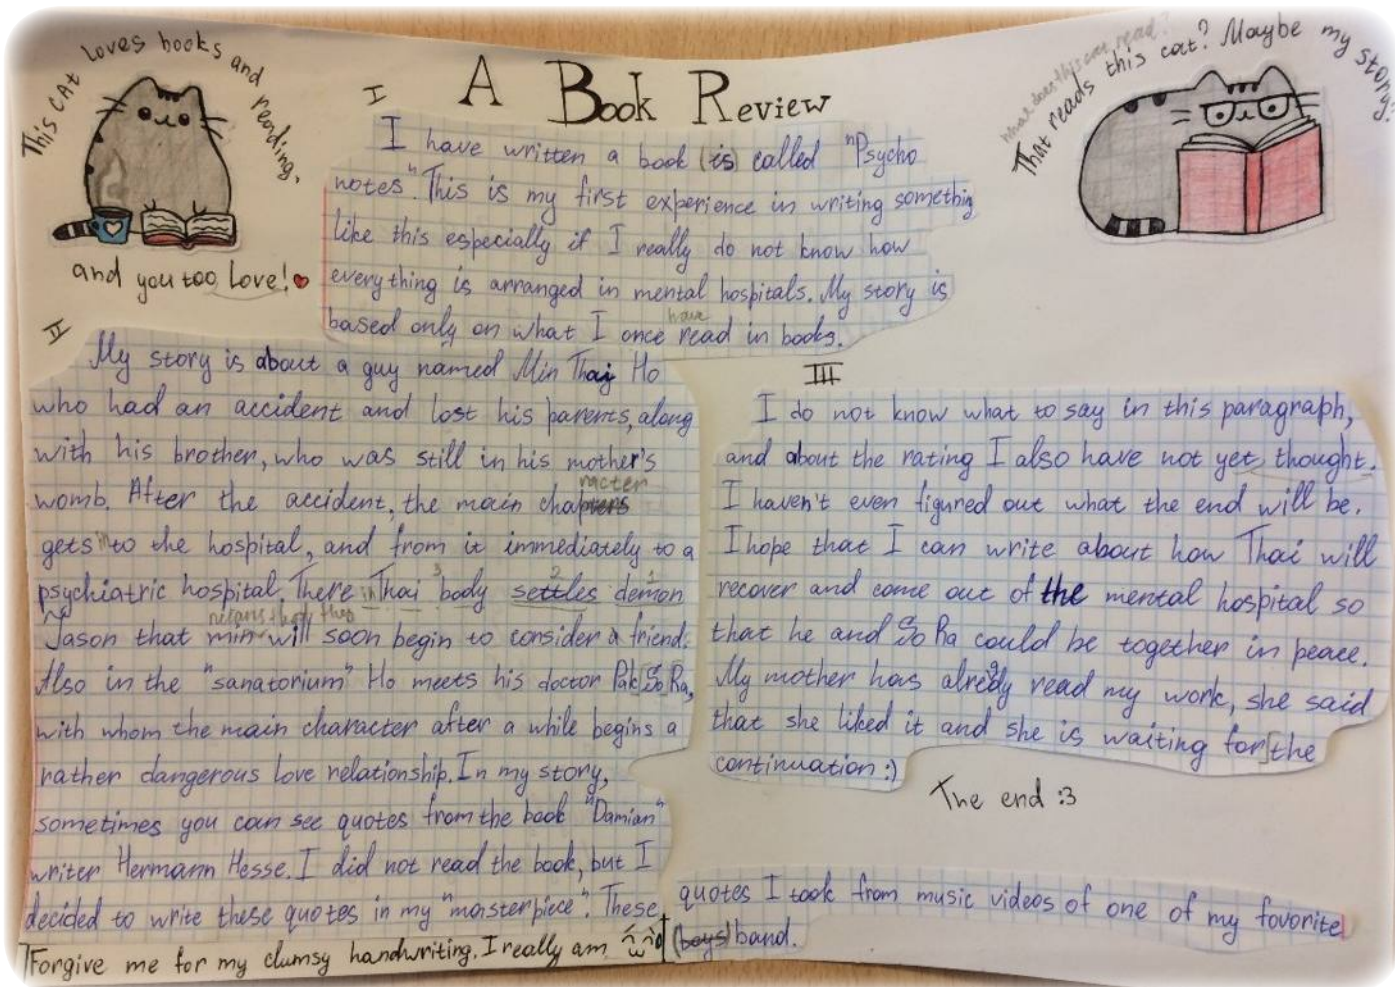 A Book Review
This CAt loves books and reading,
and you too love!
What does this cat read?
That reads this cat? Maybe my story.
I
I have written a book (is) called "Psycho
notes". This is my first experience in writing something
like this especially if I really do not know how
everything is arranged in mental hospitals. My story is
have
based only on what I once read in books.
II
My story is about a guy named Min Thai Ho
who had an accident and lost his parents, along
with his brother, who was still in his mother's
racter
womb. After the accident, the main chapters
gets into the hospital, and from it immediately to a
psychiatric hospital. There in Thai body settles demon
3 2 1
Jason that min will soon begin to consider a friend.
Also in the "sanatorium" Ho meets his doctor Pak So Ra,
with whom the main character after a while begins a
rather dangerous love relationship. In my story,
sometimes you can see quotes from the book "Damian"
writer Hermann Hesse. I did not read the book, but I
decided to write these quotes in my "masterpiece". These
quotes I took from music videos of one of my favorite
(boys) band.
Forgive me for my clumsy handwriting. I really am
III
I do not know what to say in this paragraph,
and about the rating I also have not yet thought.
I haven't even figured out what the end will be.
I hope that I can write about how Thai will
recover and come out of the mental hospital so
that he and So Ra could be together in peace.
My mother has already read my work, she said
that she liked it and she is waiting for the
continuation :)
The end :3